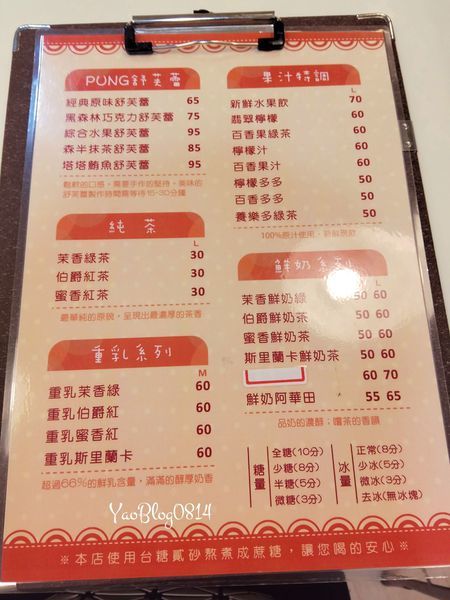 PUNG舒芙蕾
經典原味舒芙蕾 65
黑森林巧克力舒芙蕾 75
綜合水果舒芙蕾 95
森半抹茶舒芙蕾 85
塔塔鮪魚舒芙蕾 95
鬆軟的口感，需要手作的堅持，美味的
舒芙蕾製作時間需等待15-30分鐘
純茶
L
茉香綠茶 30
伯爵紅茶 30
蜜香紅茶 30
最單純的原貌，呈現出最濃厚的茶香
重乳系列
M
重乳茉香綠 60
重乳伯爵紅 60
重乳蜜香紅 60
重乳斯里蘭卡 60
超過66%的鮮乳含量，滿滿的醇厚奶香
果汁特調
L
新鮮水果飲 70
翡翠檸檬 60
百香果綠茶 60
檸檬汁 60
百香果汁 60
檸檬多多 50
百香多多 50
養樂多綠茶 50
100%原汁使用，新鮮現飲
鮮奶系列
茉香鮮奶綠 50 60
伯爵鮮奶茶 50 60
蜜香鮮奶茶 50 60
斯里蘭卡鮮奶茶 50 60
60 70
鮮奶阿華田 55 65
品奶的濃醇；嚐茶的香韻
糖量
全糖(10分)
少糖(8分)
半糖(5分)
微糖(3分)
冰量
正常(8分)
少冰(5分)
微冰(3分)
去冰(無冰塊)
YaoBlog0814
※本店使用台糖貳砂熬煮成蔗糖，讓您喝的安心※